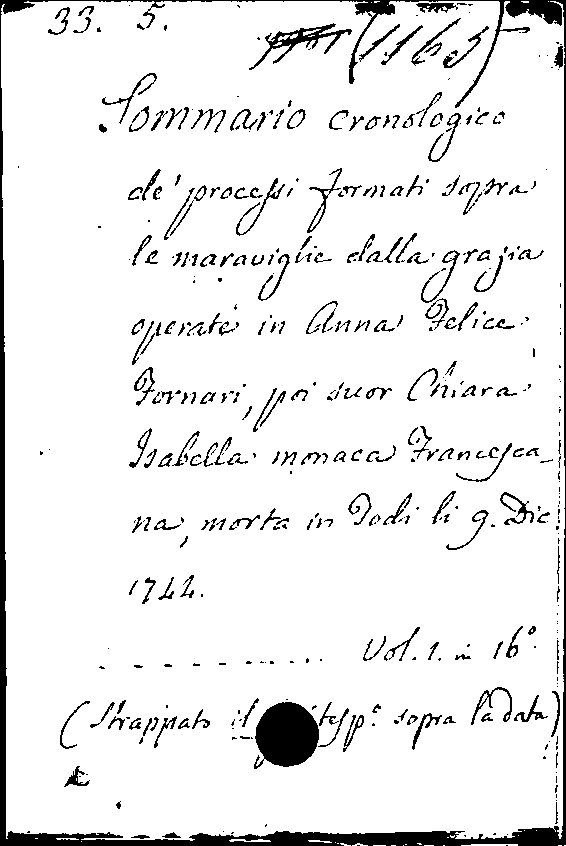 33. 5.
(1165)
Sommario cronologico
de' processi formati sopra
le maraviglie dalla grazia
operate in Anna Felice
Fornari, poi suor Chiara
Isabella monaca Francesca-
na, morta in Todi li 9. Dic.
1744.
Vol. 1. in 16°.
(Strappato il sopra la data)